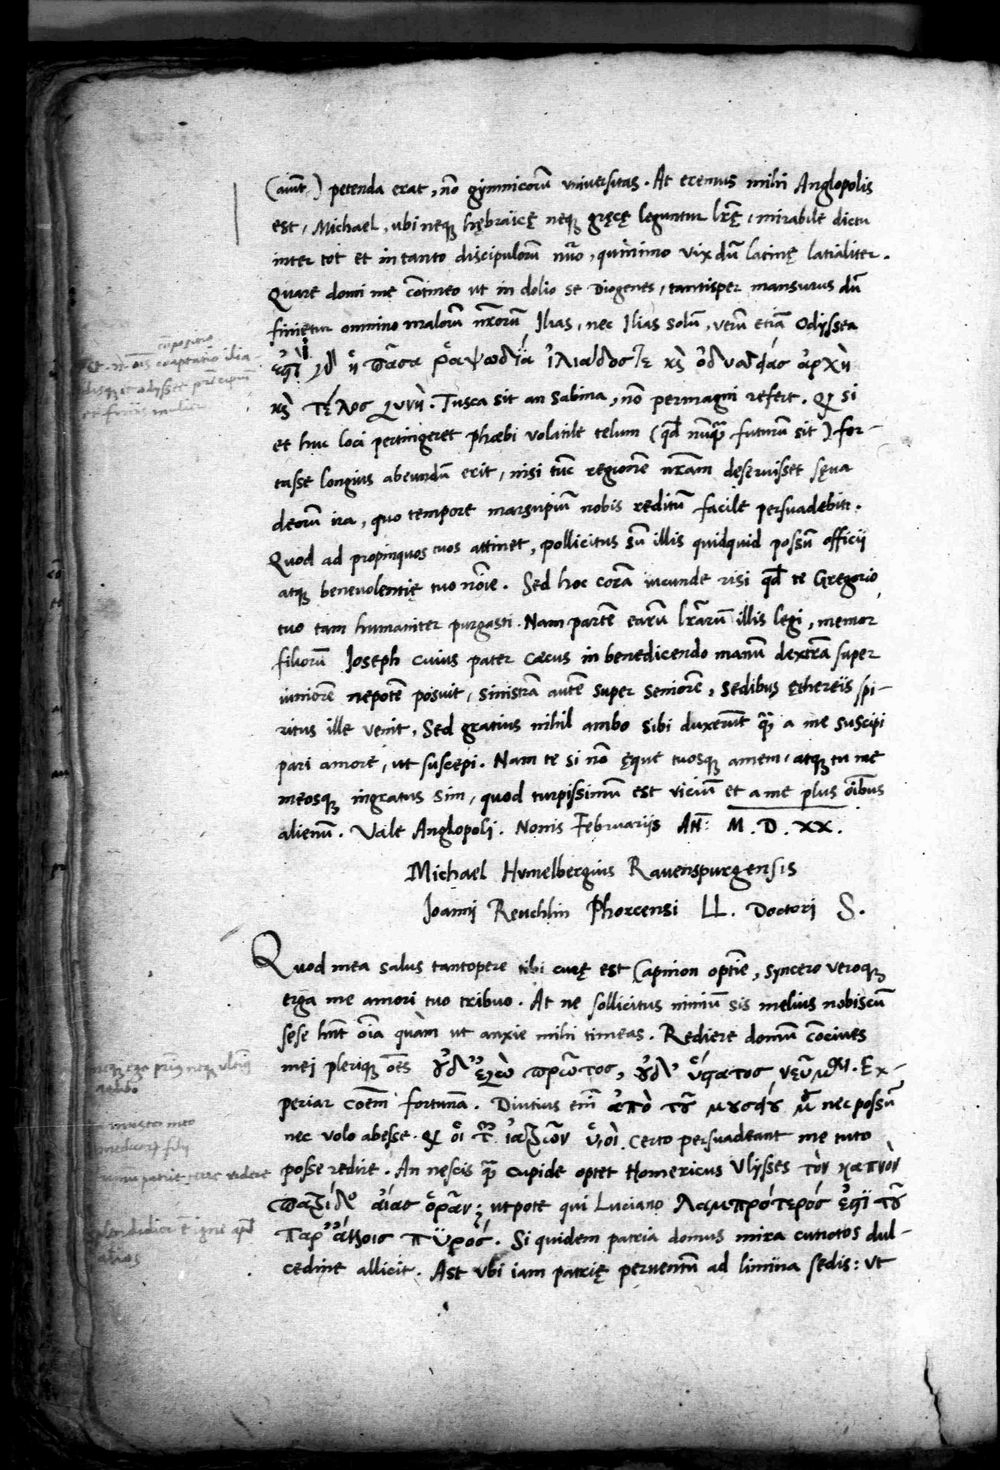 (aiunt) petenda erat, nō gymnicorū vniuersitas. At eremus mihi Anglopolis
est, Michael, ubi neq; hębraicę neq; gręcę leguntur lr̄ę, mirabile dictu
inter tot et in tanto discipulorū nūo, quinimo vix dū latinę latialiter.
Quare domi me cōtineo ut in dolio se Diogenes, tantisper mansurus dū
finietur omnino malorū nr̄orū Ilias, nec Ilias solū, verū etiā Odyssea
ἡ πᾶσα ῥαψωδία ἰλιάδος τε κὶ ὀδυσσείας ἀρχὴ
κὶ τέλος. Tusca sit an Sabina, nō permagni refert. Qd si
et huc loci pertingeret Phœbi volatile telum (qd nūq̄ futurū sit) for-
tasse longius abeundū erit, nisi tūc regionē nr̄am deseruisset sęua
deorū ira, quo tempore marsupiū nobis reditū facile persuadebit.
Quod ad propinquos tuos attinet, pollicitus sū illis quidquid possū officij
atq; beneuolentię tuo nōie. Sed hoc corā iucunde risi qd te Gregorio
tuo tam humaniter purgasti. Nam partē earū lr̄arū illis legi, memor
filiorū Joseph cuius pater cæcus in benedicendo manū dextrā super
iuniorē nepotē posuit, sinistrā autē super seniorē, sedibus ęthereis spi-
ritus ille venit, Sed gratius nihil ambo sibi duxerūt q̄ a me suscipi
pari amore, ut suscepi. Nam te si nō ęque tuosq; amem, atq; tu me
meosq; ingratus sim, quod turpissimū est viciū et a me plus oībus
alienū. Vale Anglopoli. Nonis Februarijs AN: M. D. XX.
Michael Humelbergius Rauenspurgensis
Joanni Reuchlin Phorcensi LL. Doctori S.
Quod mea salus tantopere tibi curę est Capnion optīe, syncero veroq;
erga me amori tuo tribuo. At ne sollicitus nimiū sis melius nobiscū
sese hn̄t oīa quàm ut anxie mihi timeas. Rediere domū cōciues
mei pleriq; oēs πρῶτος, ὕςατος. Ex-
periar cōem fortunā. Diutius em̄ ἀπὸ nec possū
nec volo abesse. certo persuadeant me tuto
posse redire. An nescis q̄ cupide optet Homericus Vlysses τὸν καπνὸν
ὁρᾶν; utpote qui Luciano λαμπρότερός ἐςι
παρ' ἄλλοις πυρός. Si quidem patria domus mira cunctos dul-
cedine allicit. Ast vbi iam patrię peruentū ad limina sedis: ut